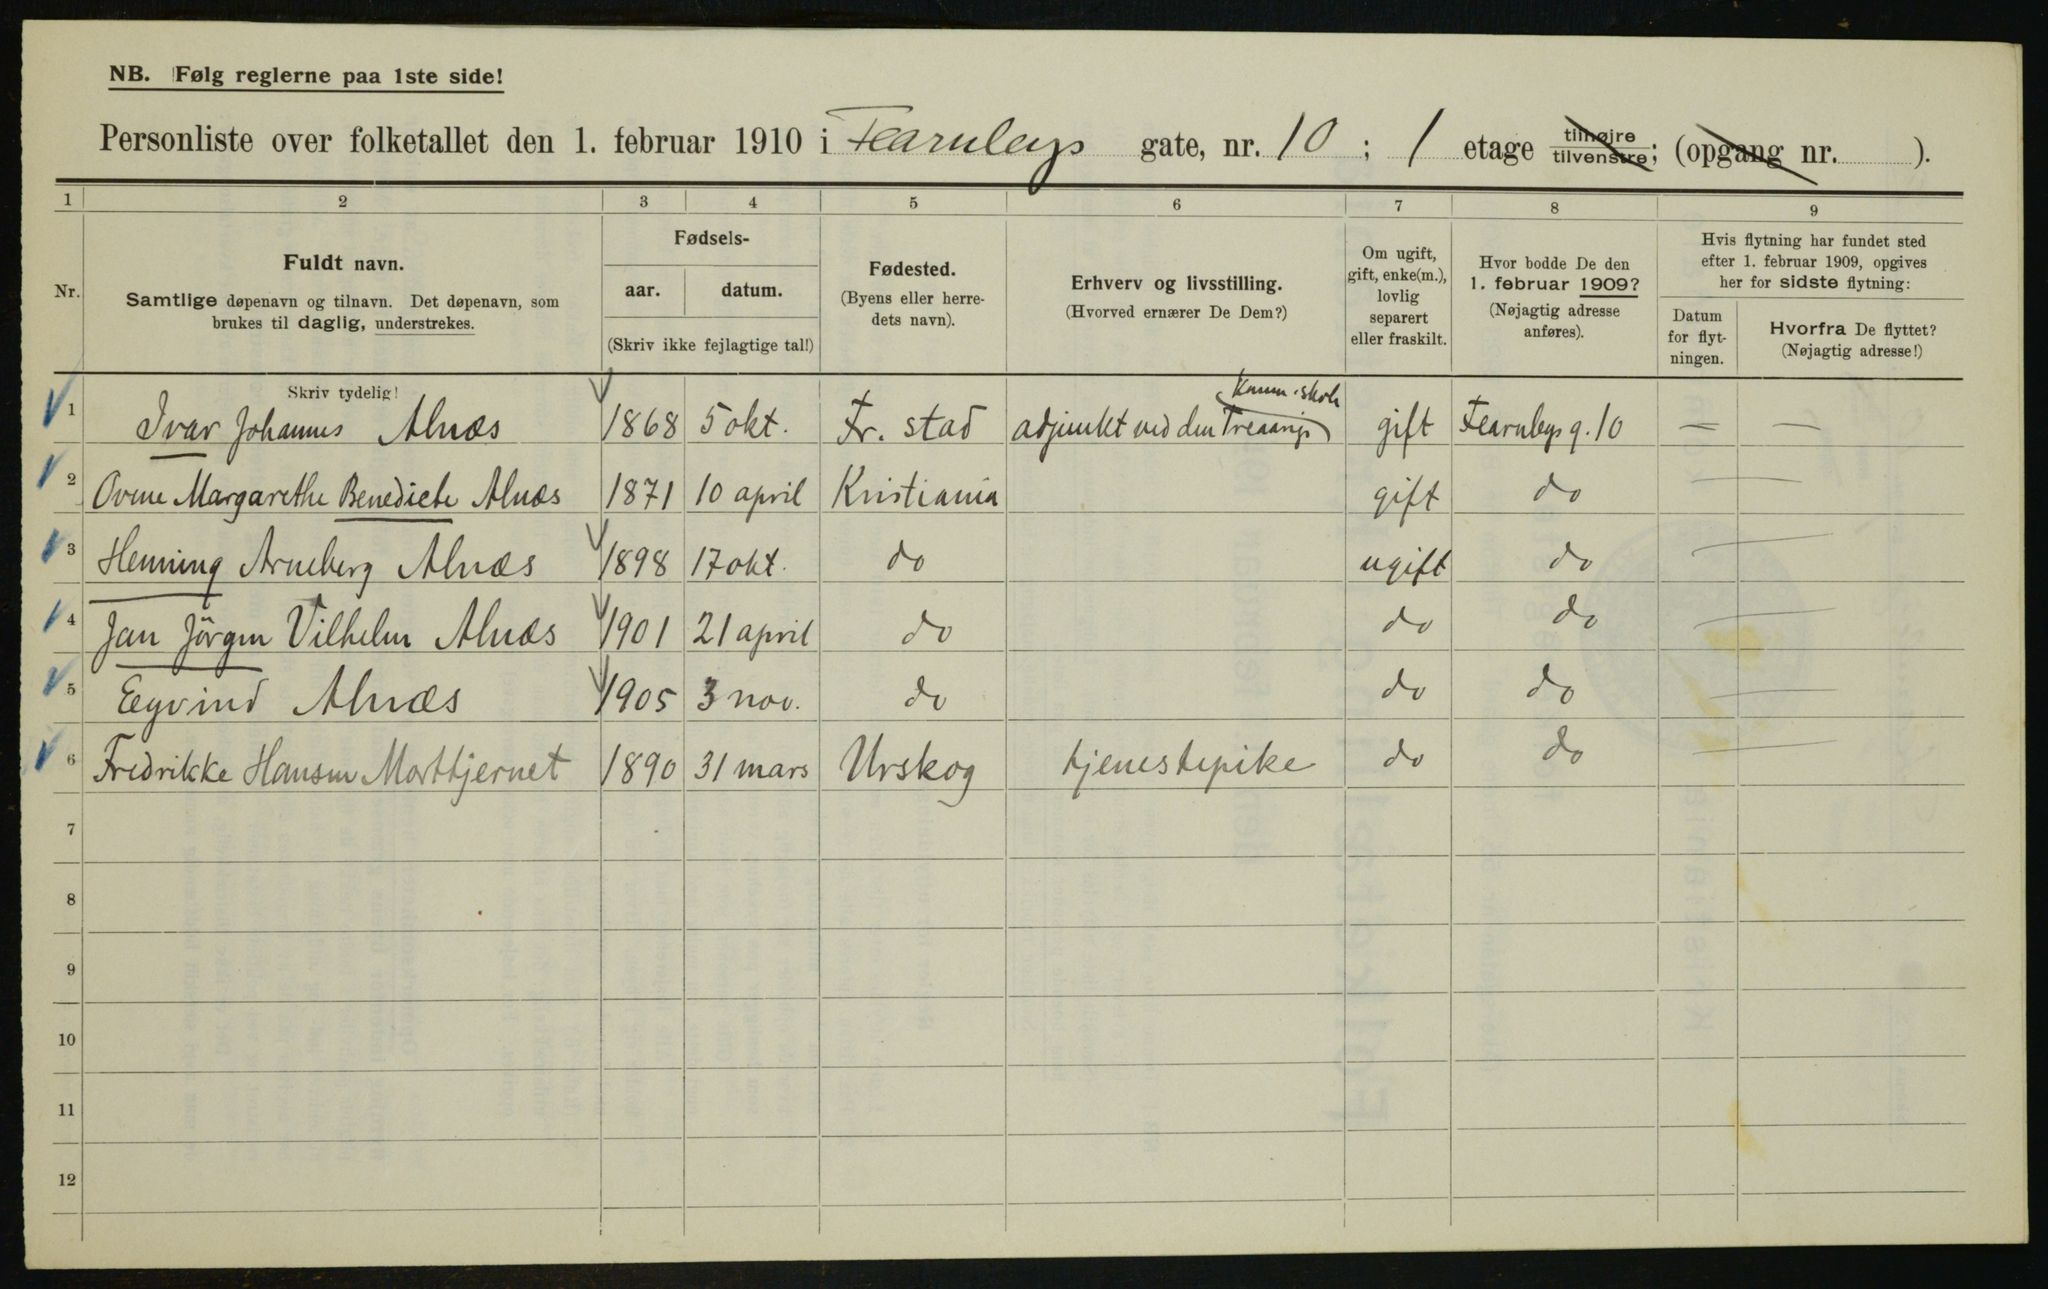 NB. Følg reglerne paa 1ste side!
Personliste over folketallet den 1. februar 1910 i Fearnleys gate, nr. 10; 1 etage tilhøjre tilvenstre; (opgang nr. ).
1 2 3 4 5 6 7 8 9
Nr.
Fuldt navn.
Samtlige døpenavn og tilnavn. Det døpenavn, som
brukes til daglig, understrekes.
Fødsels-
aar. datum.
(Skriv ikke fejlagtige tal!)
Fødested.
(Byens eller herre-
dets navn).
Erhverv og livsstilling.
(Hvorved ernærer De Dem?)
Om ugift,
gift, enke(m.),
lovlig
separert
eller fraskilt.
Hvor bodde De den
1. februar 1909?
(Nøjagtig adresse
anføres).
Hvis flytning har fundet sted
efter 1. februar 1909, opgives
her for sidste flytning:
Datum
for flyt-
ningen.
Hvorfra De flyttet?
(Nøjagtig adresse!)
Skriv tydelig!
1 Ivar Johannes Alnæs 1868 5 okt. Fr. stad adjunkt ved den Treaarige gift Fearnleys g. 10 — —
2 Ovine Margarethe Benedicte Alnæs 1871 10 april Kristiania gift do —
3 Henning Arneberg Alnæs 1898 17 okt. do ugift do —
4 Jan Jörgen Vilhelm Alnæs 1901 21 april do do do —
5 Eyvind Alnæs 1905 3 nov. do do do —
6 Fredrikke Hansen Morttjernet 1890 31 mars Urskog tjenestepike do do —
7
8
9
10
11
12